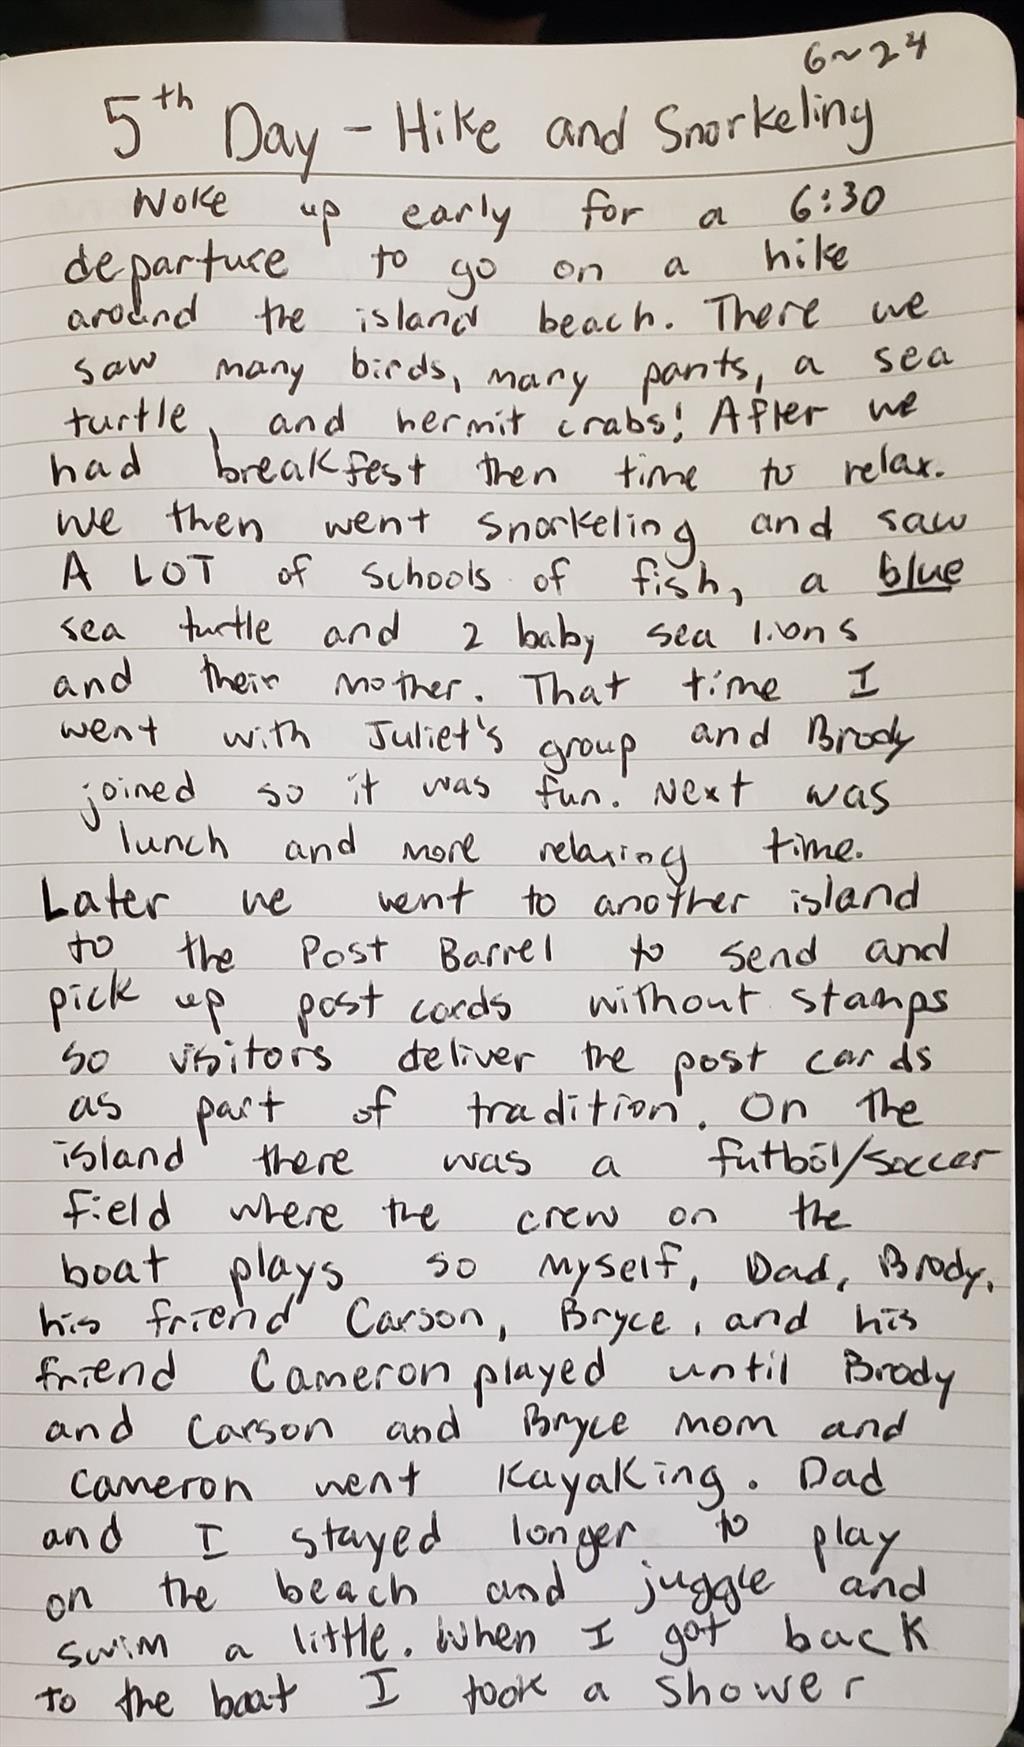 6~24
5th Day - Hike and Snorkeling
Woke up early for a 6:30
departure to go on a hike
around the island beach. There we
saw many birds, many pants, a sea
turtle, and hermit crabs! After we
had breakfest then time to relax.
We then went snorkeling and saw
A LOT of schools of fish, a blue
sea turtle and 2 baby sea lions
and their mother. That time I
went with Juliet's group and Brody
joined so it was fun. Next was
lunch and more relaxing time.
Later we went to another island
to the Post Barrel to send and
pick up post cards without stamps
so visitors deliver the post cards
as part of tradition. On the
island there was a futból/soccer
field where the crew on the
boat plays so myself, Dad, Brody,
his friend Carson, Bryce, and his
friend Cameron played until Brody
and Carson and Bryce mom and
Cameron went Kayaking. Dad
and I stayed longer to play
on the beach and juggle and
swim a little. When I got back
to the boat I took a shower